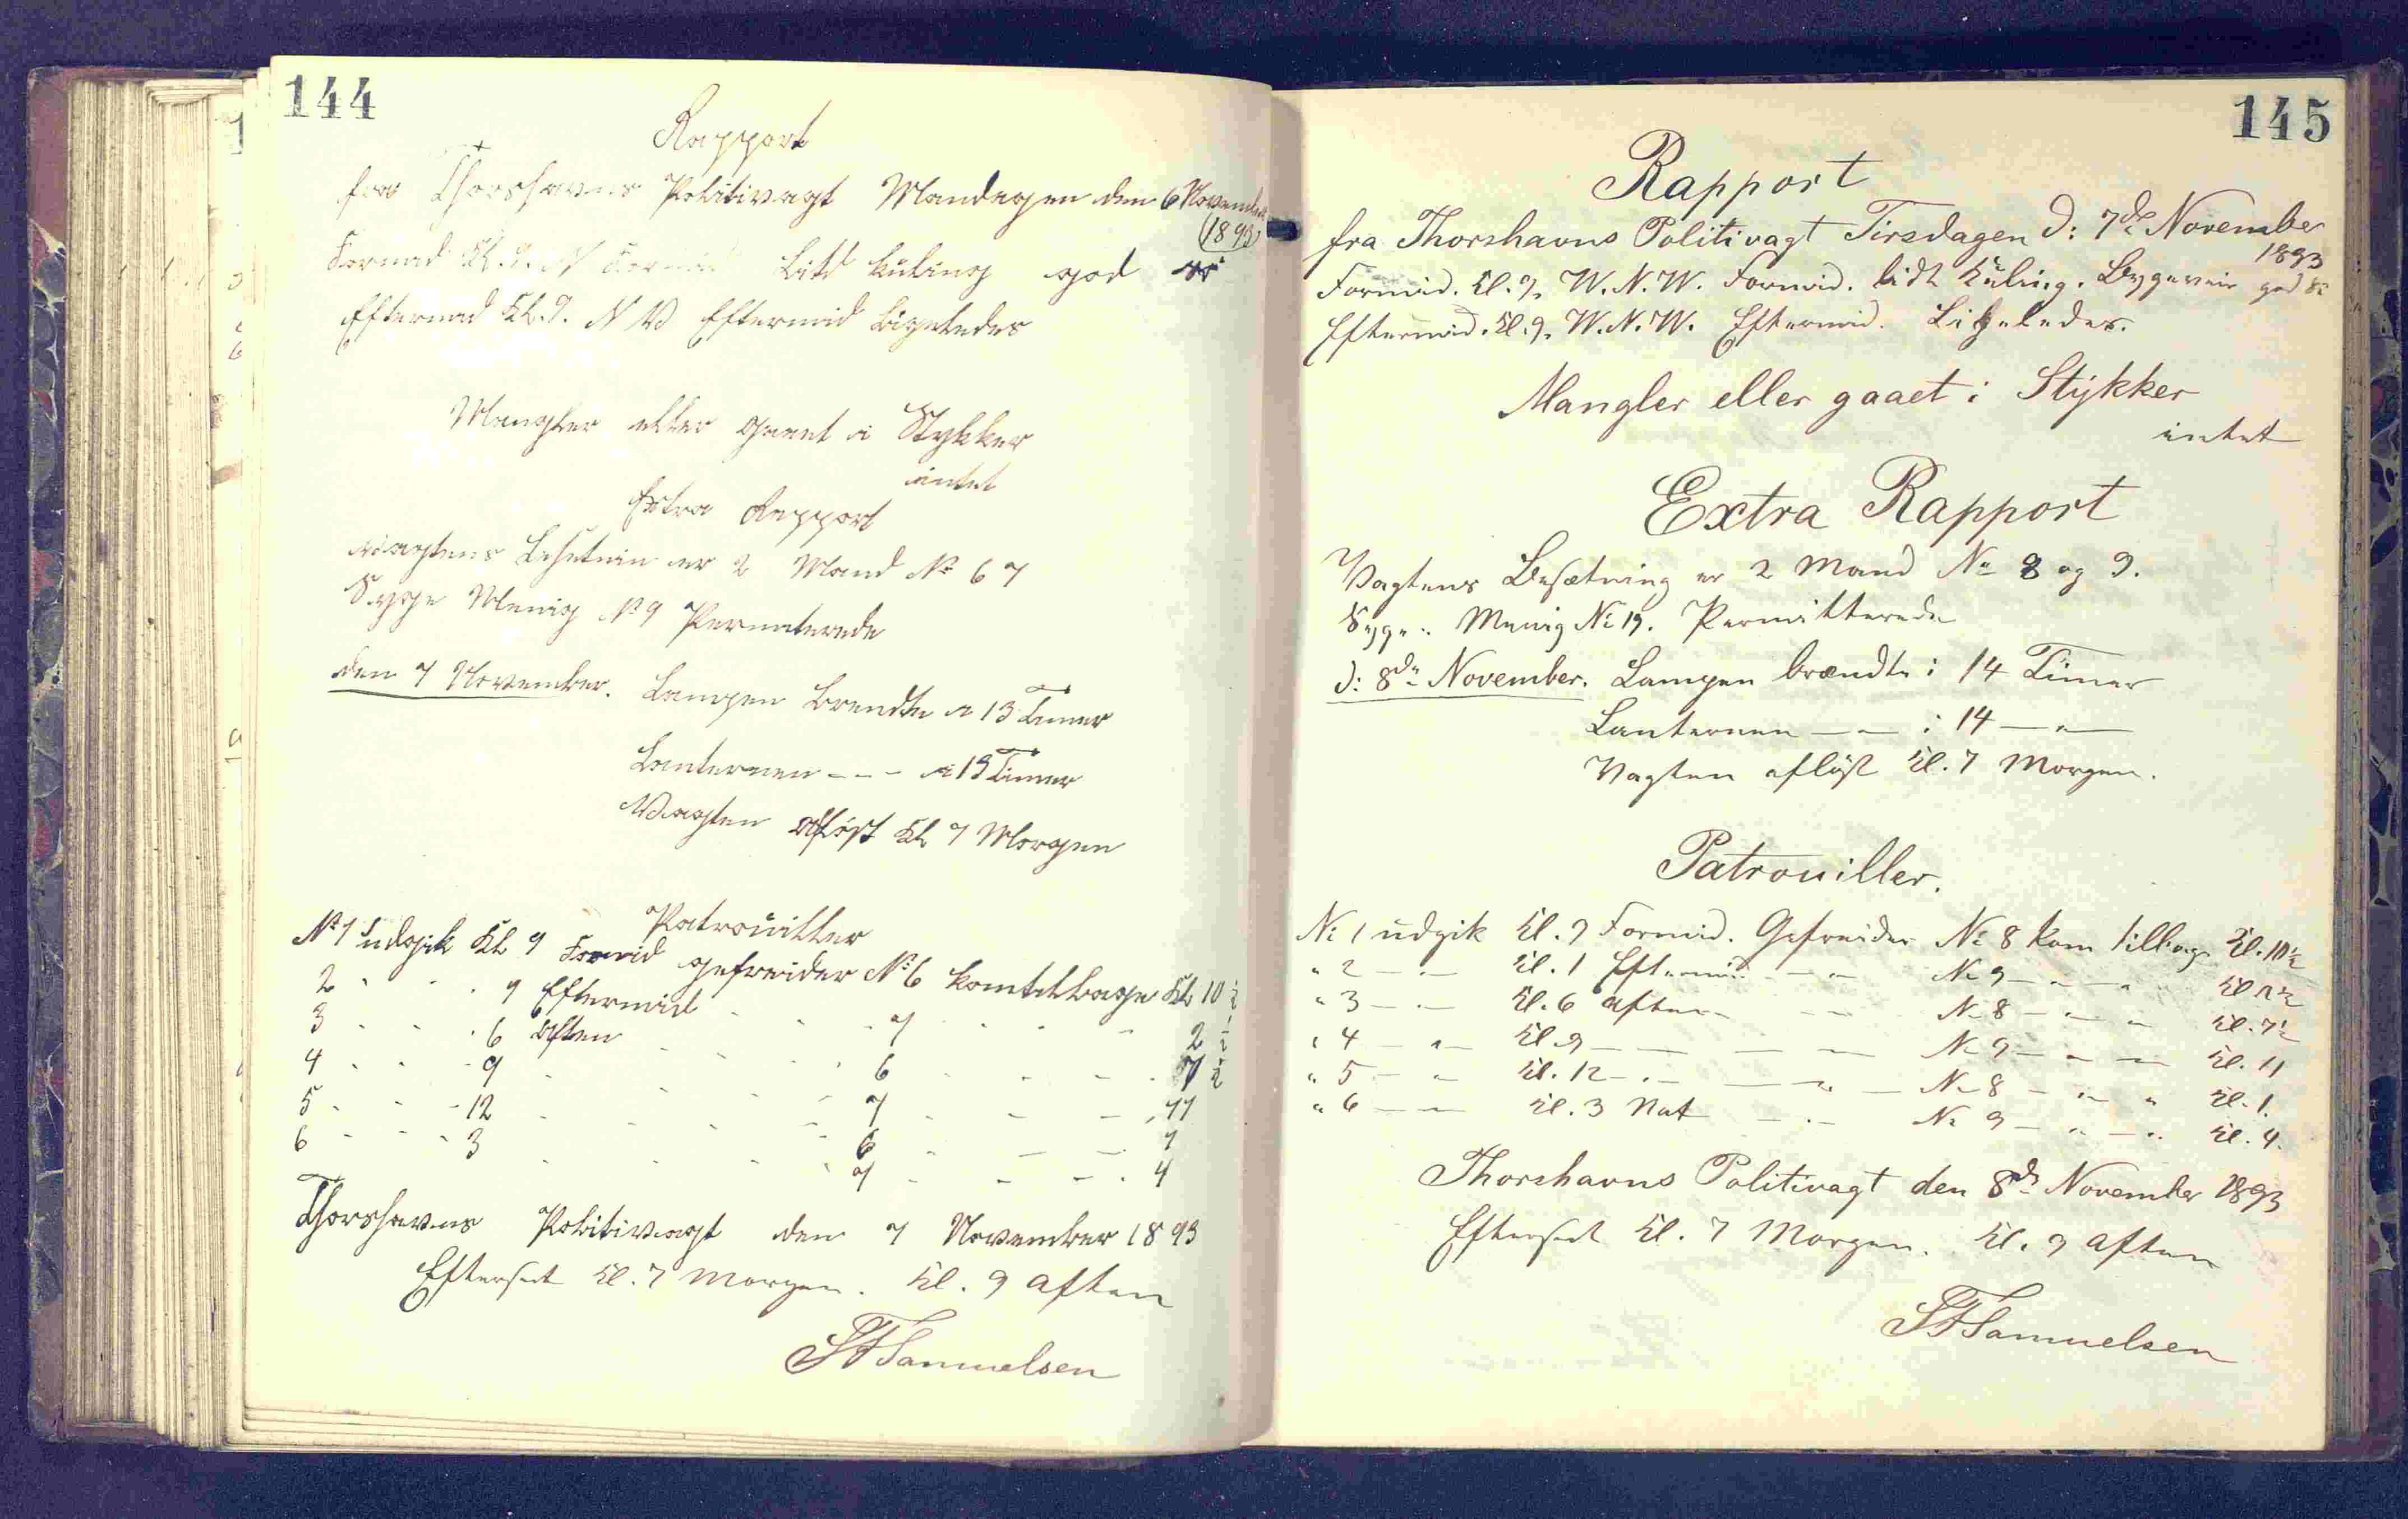 144
Rapport
fra Thorshavns Politivagt Mandagen den 6 November
1893
Formid Kl. 9. N Formid Litd kuling god
Eftermid Kl. 9. N V Eftermid Ligeledes
Mangler eller gaaet i Stykker
intet
Extra Rapport
vagtens Besetnin er 2 Mand No 6 7
Syge Menig No 9 Permiterede
den 7 November. Lampen brendte i 13 Timer
Lanternen - - - i 13 Timer
Vagten afløst Kl 7 Morgen
Patrouiller
No 1 udgik Kl 9 Formid gefreider No 6 kom tillbage Kl 10 ½
2 " " " 1 Eftermid " " 7 " " " 2 ½
3 " " " 6 Aften " " 6 " " " 7 ½
4 " " " 9 " " " 7 " " " 11
5 " " " 12 " " " 6 " " " 1
6 " " " 3 " " " 7 " " " 4
Thorshavns Politivagt den 7 November 1893
Efterseet Kl. 7 Morgen. Kl. 9 Aften
Samuelsen
145
Rapport
fra Thorshavns Politivagt Tirsdagen D: 7de November
1893
Formid. Kl. 9. W.N.W. Formid. lidt Kuling. Bygeveir god
Eftermid. Kl. 9. W.N.W. Eftermid. Ligeledes.
Mangler eller gaaet i Stykker
intet
Extra Rapport
Vagtens Besætning er 2 Mand No 8 og 9.
Syge: Menig No 19. Permitterede
D: 8de November. Lampen brændte i 14 Timer
Lanternen — — i 14 — " —
Vagten afløst Kl. 7 Morgen.
Patrouiller.
No 1 udgik Kl. 9 Formid. Gefreider No 8 kom tillbage Kl. 10½
" 2 — " — Kl. 1 Eftermid — " — No 9 — " — " Kl 2½
" 3 — " — Kl. 6 Aften — — " — No 8 — " — " Kl. 7½
" 4 — " — Kl. 9 — — — " — No 9 — " — " Kl. 11
" 5 — " — Kl. 12 — " — — " — No 8 — " — " Kl. 1.
" 6 — " — Kl. 3 Nat — " — No 9 — " — " Kl. 4.
Thorshavns Politivagt den 8de November 1893
Efterseet Kl. 7 Morgen. Kl. 9 Aften
Samuelsen